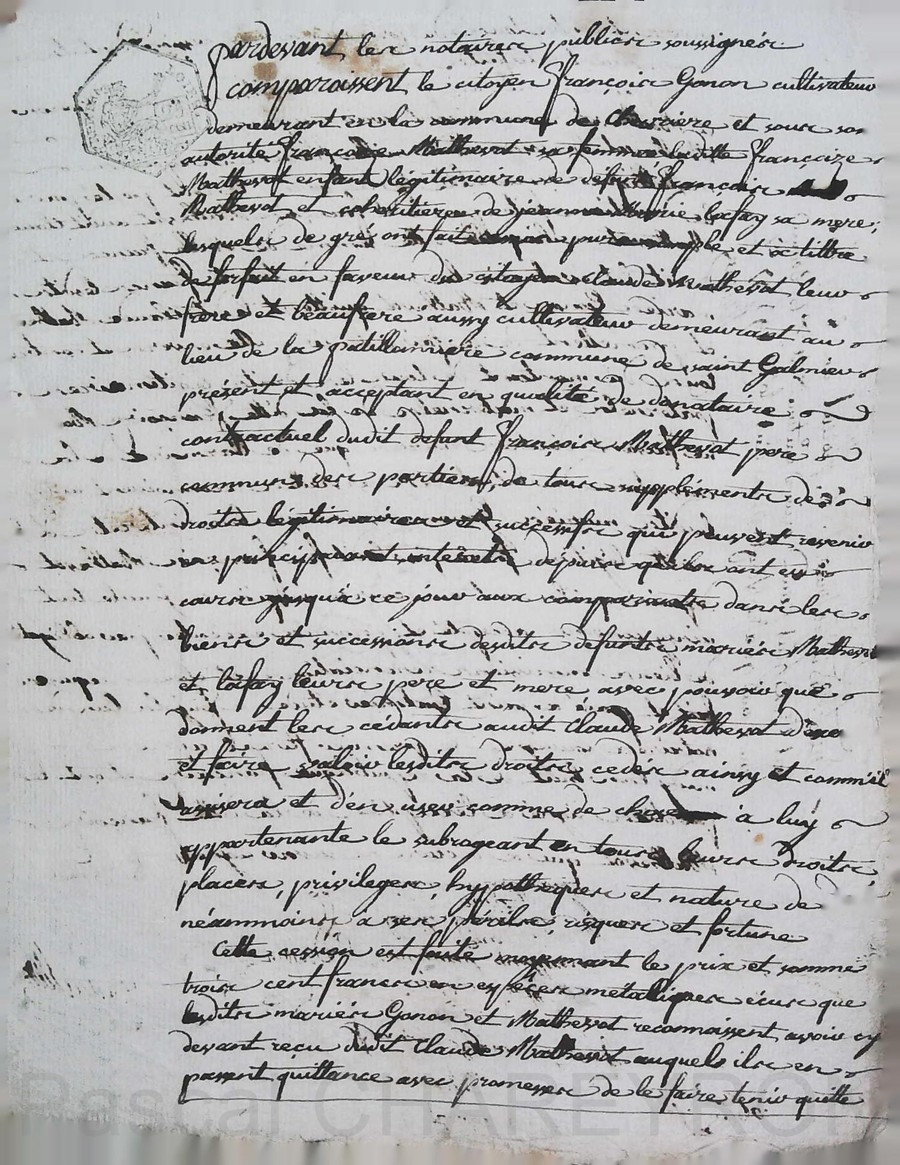 pardevant les notaires publics soussignés
comparoissent le citoyen françois Gonon cultivateur
demeurant en la commune de chevriere et sous son
autorité françoise Mathevot sa femme laditte françoize
Mathevot enfant légitimaire de défunt françois
Mathevot et cohéritiere de jeanne Marie lafay sa mere,
lesquels de gré ont fait pure simple et a tittre
de forfait en faveur du citoyen claude Mathevot leur
frere et beaufrere aussy cultivateur demeurant au
lieu de la commune de saint Galmier
présent et acceptant en qualité de donataire
contractuel dudit défunt françois Mathevot pere
commun des parties, de tous supplements de
droits légitimaires et successifs qui peuvent revenir
en principaux et intérêts depuis qu'ils ont eu
cours jusqu'à ce jour aux comparants dans les
biens et successions desdits defunts mariés Mathevot
et lafay leurs pere et mere avec pouvoir que
donnent les cédants audit Claude Mathevot
et faire valoir lesdits droits cedés ainsy et comm'il
avisera et d'en user comme de chose à luy
appartenante le subrogeant en tous leurs droits,
places, privileges, hypotheques et nature de
néammoins a ses périls, risques et fortune
Cette cession est faitte moyennant le prix et somme
trois cent francs en espéces métalliques écus que
lesdits mariés Gonon et Mathevot reconnoissent avoir cy
devant reçu dudit Claude Mathevot auquel ils en
passent quittance avec promesses de le faire tenir quitte
Pascal CHAREYRON